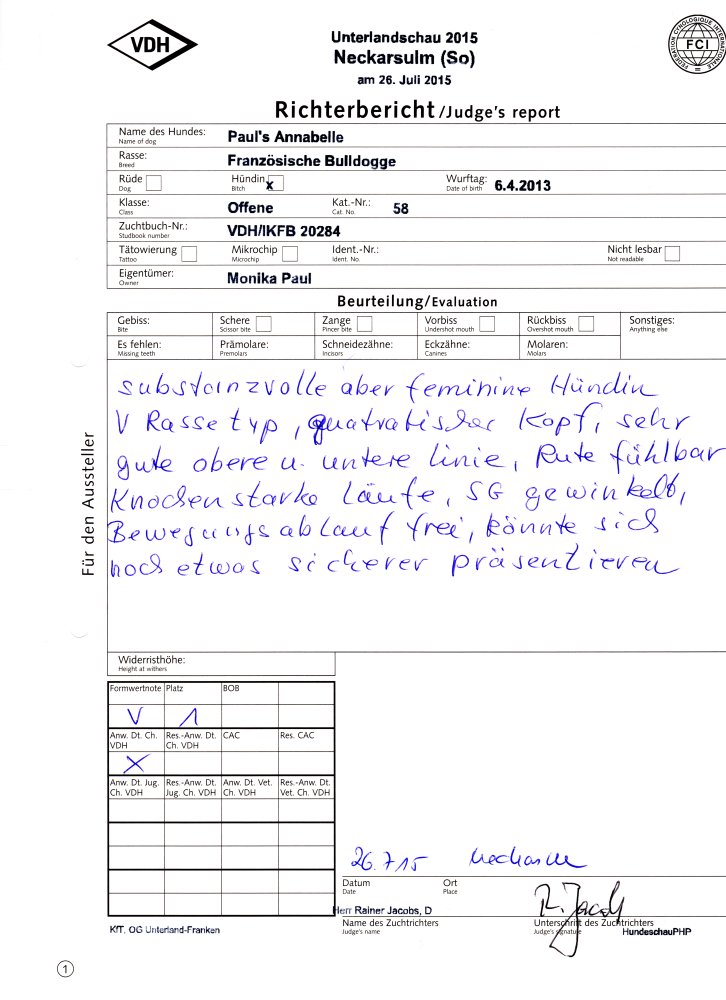 VDH
Unterlandschau 2015
Neckarsulm (So)
am 26. Juli 2015
FEDERATION CYNOLOGIQUE INTERNATIONALE
FCI
Richterbericht/Judge's report
Name des Hundes: Paul's Annabelle
Name of dog
Rasse: Französische Bulldogge
Breed
Rüde Hündin x Wurftag: 6.4.2013
Dog Bitch Date of birth
Klasse: Offene Kat.-Nr.: 58
Class Cat. No.
Zuchtbuch-Nr.: VDH/IKFB 20284
Studbook number
Tätowierung Mikrochip Ident.-Nr.: Nicht lesbar
Tattoo Microchip Ident. No. Not readable
Eigentümer: Monika Paul
Owner
Beurteilung/Evaluation
Gebiss: Schere Zange Vorbiss Rückbiss Sonstiges:
Bite Scissor bite Pincer bite Undershot mouth Overshot mouth Anything else
Es fehlen: Prämolare: Schneidezähne: Eckzähne: Molaren:
Missing teeth Premolars Incisors Canines Molars
substanzvolle aber feminine Hündin
V Rassetyp, quatratischer Kopf, sehr
gute obere u. untere Linie, Rute fühlbar
Knochenstarke Läufe, SG gewinkelt,
Bewegungsablauf frei, könnte sich
noch etwas sicherer präsentieren
Für den Aussteller
Widerristhöhe:
Height at withers
Formwertnote Platz BOB
V 1
Anw. Dt. Ch. VDH Res.-Anw. Dt. Ch. VDH CAC Res. CAC
X
Anw. Dt. Jug. Ch. VDH Res.-Anw. Dt. Jug. Ch. VDH Anw. Dt. Vet. Ch. VDH Res.-Anw. Dt. Vet. Ch. VDH
26.7.15
Datum Ort
Date Place
Herr Rainer Jacobs, D
R. Jacobs
Name des Zuchtrichters Unterschrift des Zuchtrichters
Judge's name Judge's signature HundeschauPHP
KfT, OG Unterland-Franken
1